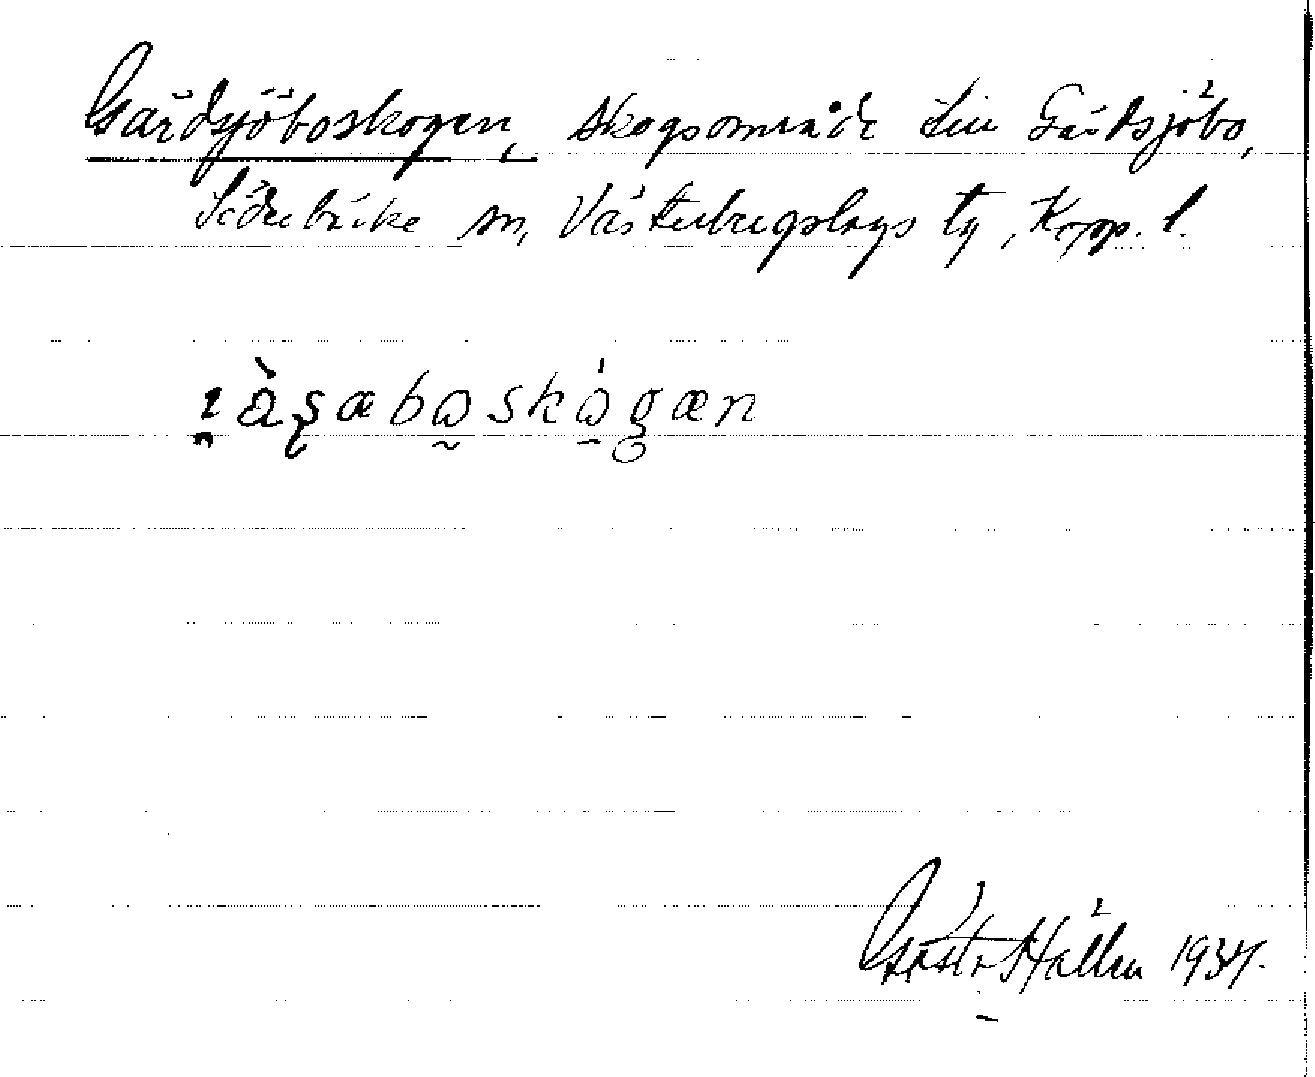 Gärdsjöboskogen, skogsområde till Gärdsjöbo,
Söderbärke sn, Västerbergslags tg, Kopp. l.
skógæn
Gösta Hallén 1934.